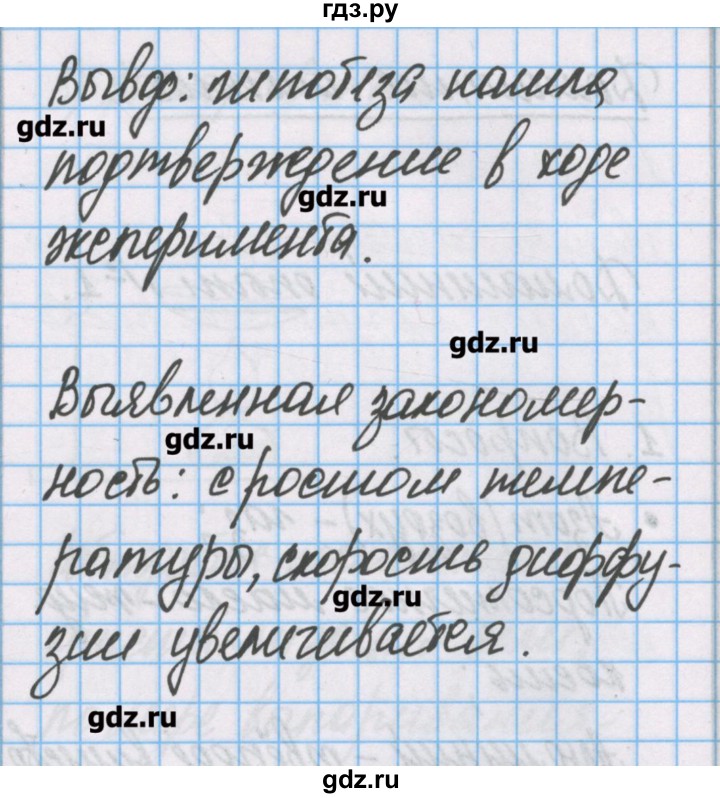 гдз.ру
Вывод: гипотеза нашла
gdz.ru
подтверждение в ходе
gdz.ru
эксперимента.
gdz.ru
Выявленная закономер-
gdz.ru
ность: с ростом темпе-
ратуры, скорость диффу-
gdz.ru
зии увеличивается.
gdz.ru
gdz.ru